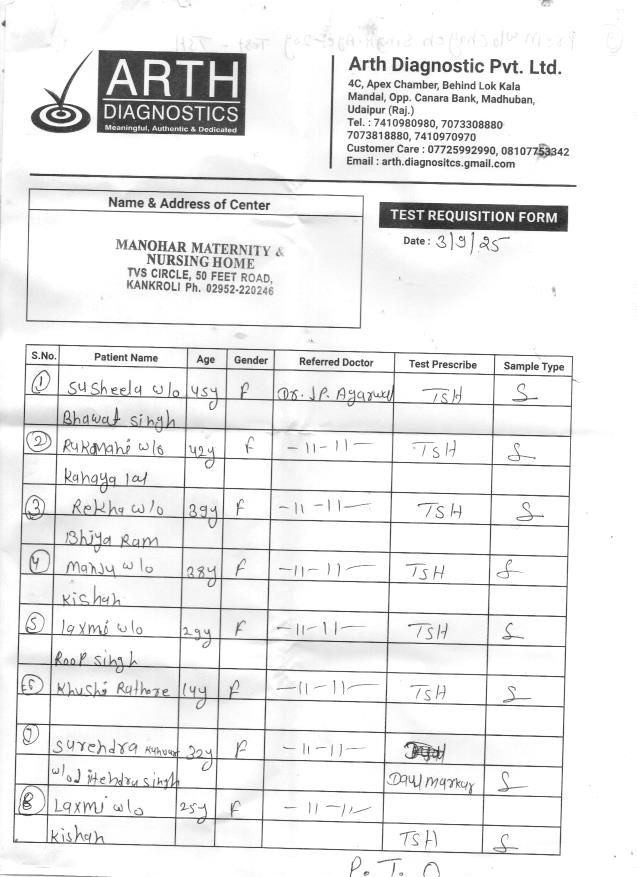 ARTH
DIAGNOSTICS
Meaningful, Authentic & Dedicated
Arth Diagnostic Pvt. Ltd.
4C, Apex Chamber, Behind Lok Kala
Mandal, Opp. Canara Bank, Madhuban,
Udaipur (Raj.)
Tel. : 7410980980, 7073308880
7073818880, 7410970970
Customer Care : 07725992990, 08107753342
Email : arth.diagnositcs.gmail.com
Name & Address of Center
MANOHAR MATERNITY &
NURSING HOME
TVS CIRCLE, 50 FEET ROAD,
KANKROLI Ph. 02952-220246
TEST REQUISITION FORM
Date : 3/9/25
S.No. Patient Name Age Gender Referred Doctor Test Prescribe Sample Type
1 Susheela w/o 45y F Dr. J.P. Agarwal TSH S
Bhawat singh
2 Rukmani w/o 42y F -11-11- TSH S
Kanaya lal
3 Rekha w/o 39y F -11-11- TSH S
Bhiya Ram
4 Manju w/o 38y F -11-11- TSH S
Kishan
5 Laxmi w/o 29y F -11-11- TSH S
Roop singh
6 Khushi Rathore 14y F -11-11- TSH S
7 Surendra Kunwar 32y F -11-11-
w/o Jitendra singh Daul markar S
8 Laxmi w/o 25y F -11-11-
Kishan TSH S
P. T. O